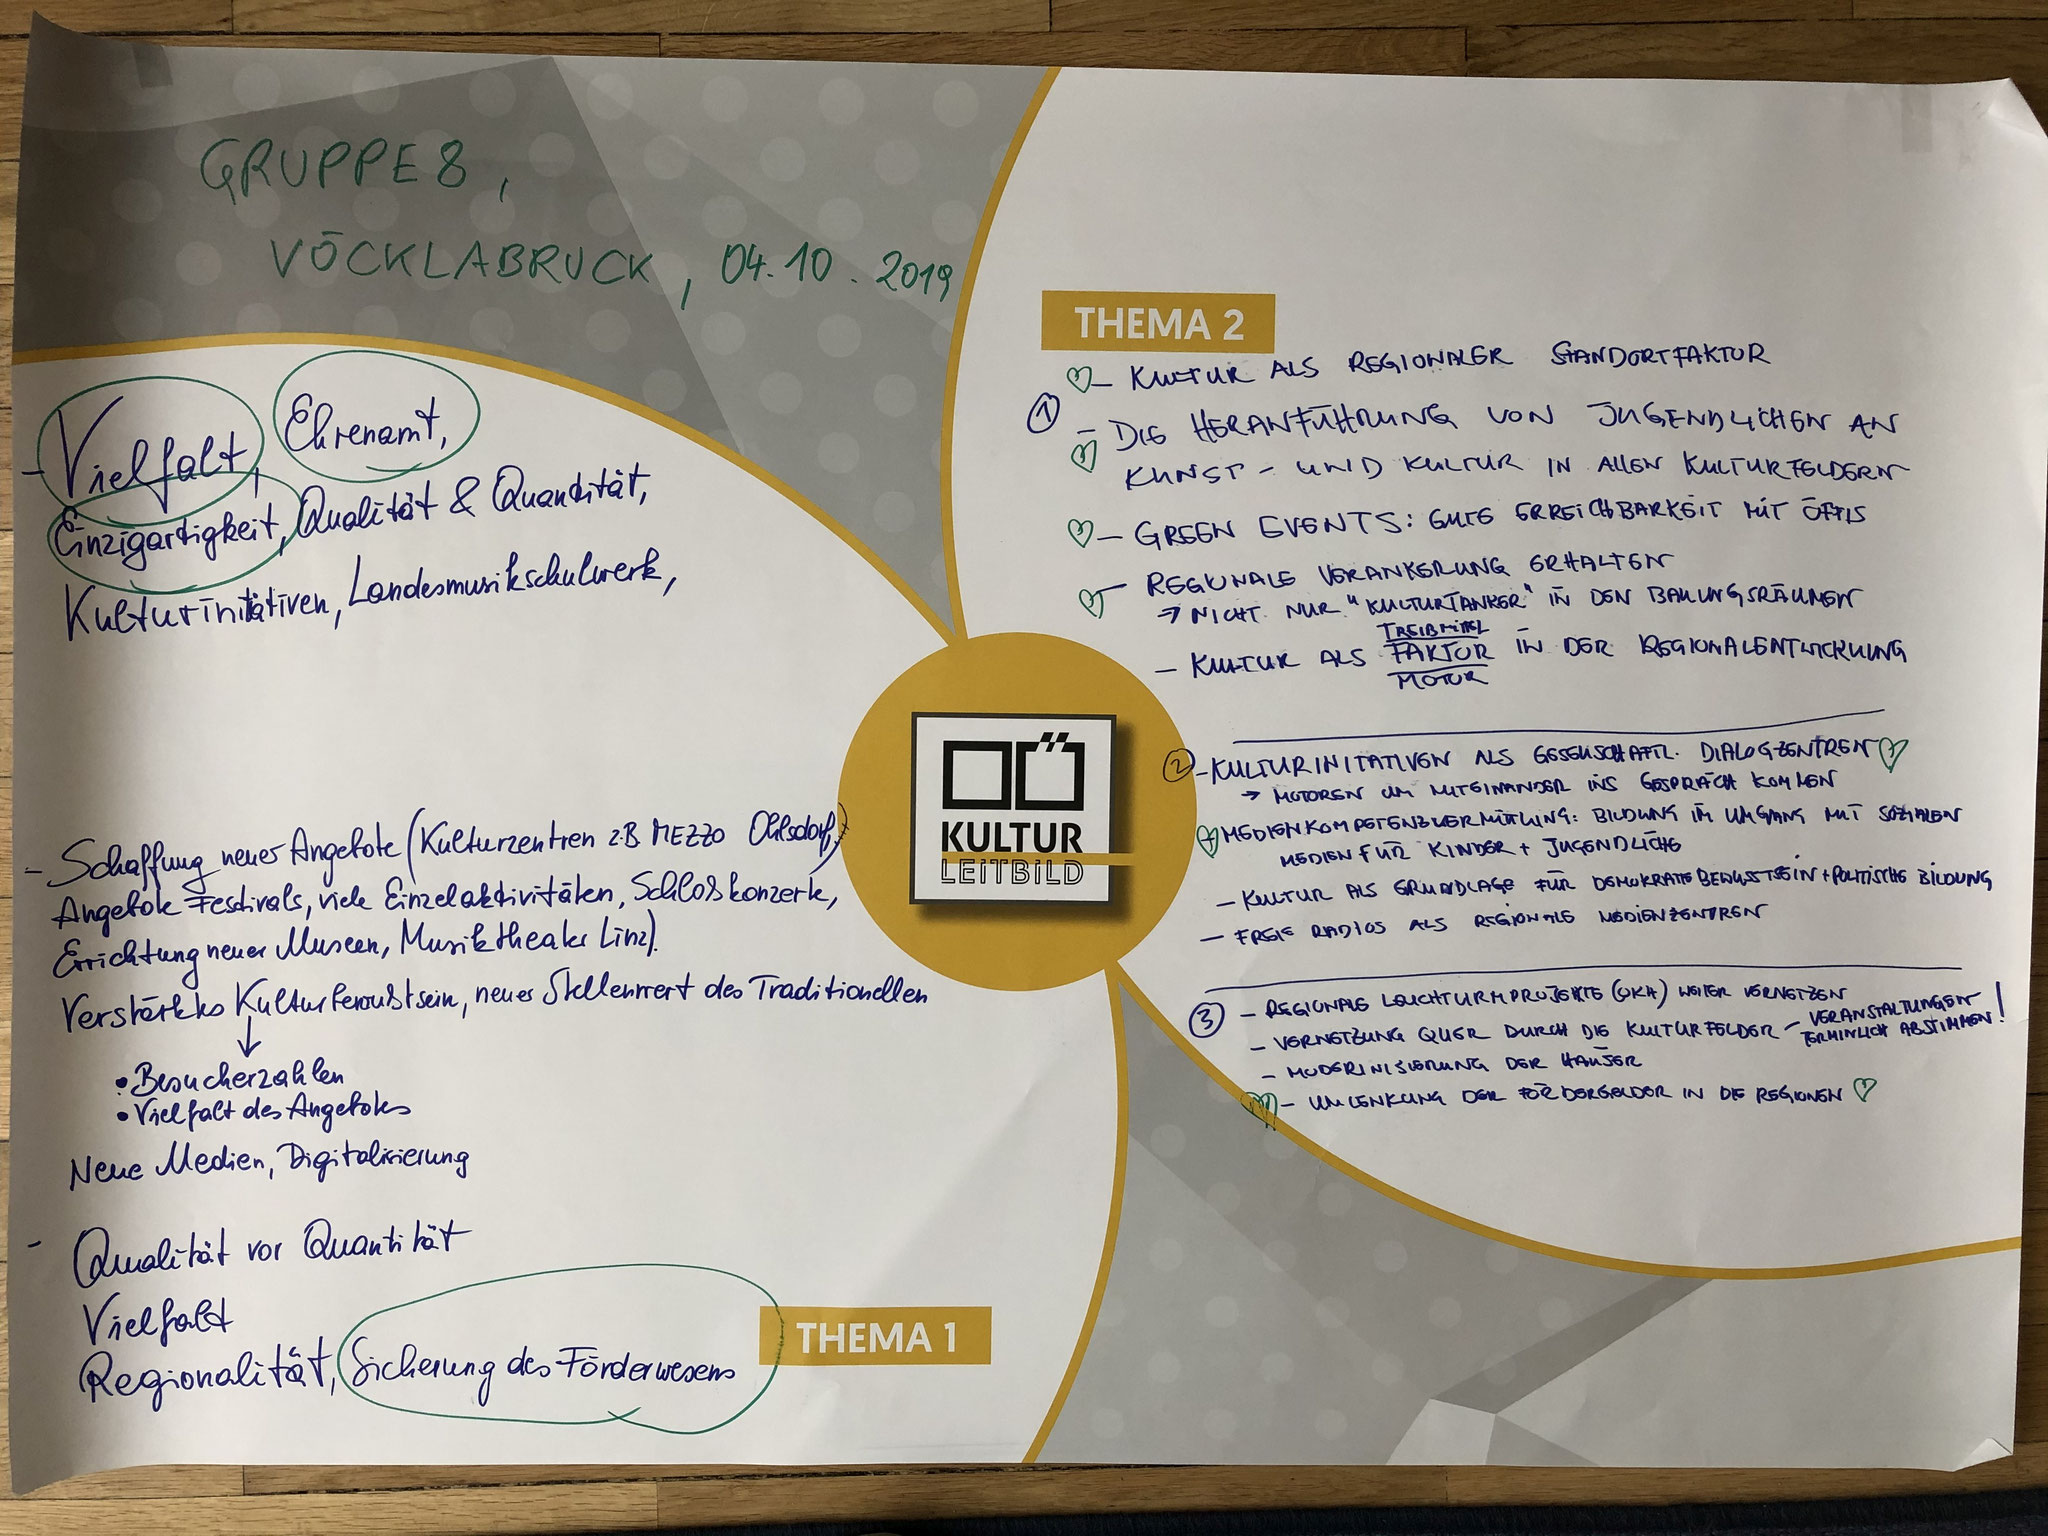 GRUPPE 8,
VÖCKLABRUCK, 04.10.2019
- Vielfalt, Ehrenamt,
Einzigartigkeit, Qualität & Quantität,
Kulturinitiativen, Landesmusikschulwerk,
- Schaffung neuer Angebote (Kulturzentren z.B MEZZO Ohlsdorf,)
Angebote Festivals, viele Einzelaktivitäten, Schlosskonzerte,
Errichtung neuer Museen, Musiktheater Linz).
Verstärktes Kulturbewusstsein, neuer Stellenwert des Traditionellen
↓
• Besucherzahlen
• Vielfalt des Angebotes
Neue Medien, Digitalisierung
- Qualität vor Quantität
Vielfalt
Regionalität, Sicherung des Förderwesens
THEMA 1
OÖ
KULTUR
LEITBILD
THEMA 2
- KULTUR ALS REGIONALER STANDORTFAKTUR
① - DIE HERANFÜHRUNG VON JUGENDLICHEN AN
KUNST- UND KULTUR IN ALLEN KULTURFELDERN
- GREEN EVENTS: GUTE ERREICHBARKEIT MIT ÖFFIS
- REGIONALE VERANKERUNG ERHALTEN
→ NICHT NUR "KULTURTANKER" IN DEN BALLUNGSRÄUMEN
TREIBMITTEL
- KULTUR ALS FAKTOR IN DER REGIONALENTWICKLUNG
MOTOR
② - KULTURINITATIVEN ALS GESELLSCHAFTL. DIALOGZENTREN
→ MOTOREN UM MITEINANDER INS GESPRÄCH KOMMEN
- MEDIENKOMPETENZVERMITTLUNG: BILDUNG IM UMGANG MIT SOZIALEN
MEDIEN FÜR KINDER + JUGENDLICHE
- KULTUR ALS GRUNDLAGE FÜR DEMOKRATIEBEWUSSTSEIN + POLITISCHE BILDUNG
- FREIE RADIOS ALS REGIONALE MEDIENZENTREN
③ - REGIONALE LEUCHTURMPROJEKTE (OKH) WEITER VERNETZEN
- VERNETZUNG QUER DURCH DIE KULTURFELDER - VERANSTALTUNGEN
TERMINLICH ABSTIMMEN!
- MODERNISIERUNG DER HÄUSER
- UMLENKUNG DER FÖRDERGELDER IN DIE REGIONEN